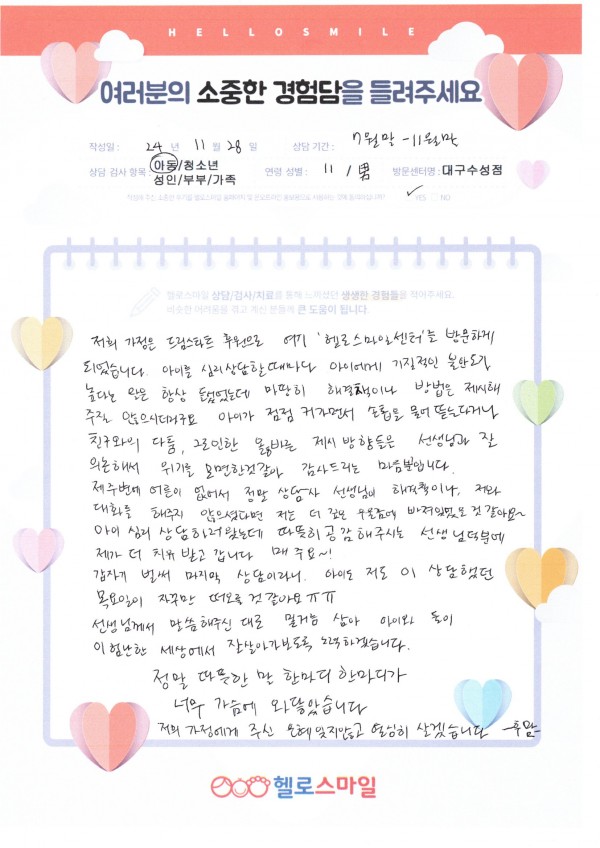 HELLOSMILE
여러분의 소중한 경험담을 들려주세요
작성일 : 24 년 11 월 28 일 상담 기간 : 7월말 - 11월말
상담 검사 항목 : 아동/청소년 성인/부부/가족 연령 성별 : 11 / 男 방문센터명 : 대구수성점
YES NO
헬로스마일 상담/검사/치료를 통해 느끼셨던 생생한 경험들을 적어주세요.
비슷한 어려움을 겪고 계신 분들께 큰 도움이 됩니다.
저희 가정은 드림스타트 후원으로 여기 '헬로스마일센터'를 방문하게
되었습니다. 아이를 심리상담할때마다 아이에게 기질적인 불안도가
높다는 말은 항상 들었었는데 마땅히 해결책이나 방법은 제시해
주질 않으시더라구요 아이가 점점 커가면서 손톱을 물어 뜯는다거나
친구와의 다툼, 그로인한 올바른 제시 방향들은 선생님과 잘
의논해서 위기를 모면한것같아 감사드리는 마음뿐입니다.
제주변에 어른이 없어서 정말 상담사 선생님이 해결책이나, 저와
대화를 해주지 않으셨다면 저는 더 깊은 우울감에 빠져있었을 것 같아요~
아이 심리 상담하러왔는데 따뜻히 공감해주시는 선생님덕분에
제가 더 치유 받고 갑니다 매 주요~!
갑자기 벌써 마지막 상담이라니. 아이도 저도 이 상담했던
목요일이 자꾸만 떠오를 것 같아요 ㅠㅠ
선생님께서 말씀해주신 대로 밑거름 삼아 아이와 둘이
이 험난한 세상에서 잘살아가보도록 노력하겠습니다.
정말 따뜻한 말 한마디 한마디가
너무 가슴에 와닿았습니다
저희 가정에게 주신 은혜 잊지않고 열심히 살겠습니다
헬로스마일